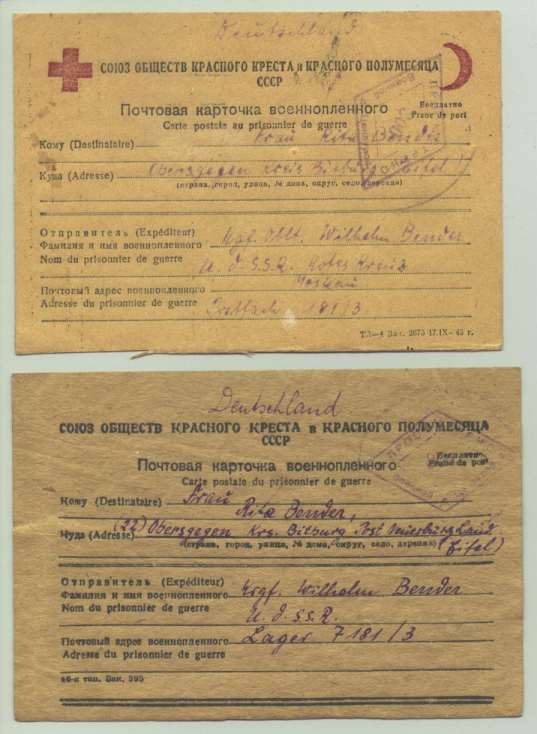 Deutschland
СОЮЗ ОБЩЕСТВ КРАСНОГО КРЕСТА и КРАСНОГО ПОЛУМЕСЯЦА
СССР
Почтовая карточка военнопленного
Бесплатно
Carte postale au prisonnier de guerre
Franc de port
Кому (Destinataire) Frau Rita Bender
Куда (Adresse) Obersgegen Kreis Bitburg (Eifel)
(страна, город, улица, № дома, округ, село, деревня)
Отправитель (Expéditeur)
Фамилия и имя военнопленного Kgf. Oblt. Wilhelm Bender
Nom du prisonnier de guerre
U.d.S.S.R. Rotes Kreuz
Почтовый адрес военнопленного Moskau
Adresse du prisonnier de guerre Postfach 181/3
Deutschland
СОЮЗ ОБЩЕСТВ КРАСНОГО КРЕСТА и КРАСНОГО ПОЛУМЕСЯЦА
СССР
Почтовая карточка военнопленного
Бесплатно
Franc de port
Carte postale du prisonnier de guerre
Кому (Destinataire) Frau
Rita Bender,
Куда (Adresse) (22) Obersgegen Krs. Bitburg Post Neuerburg Land
(страна, город, улица, № дома, округ, село, деревня) (Eifel)
Отправитель (Expéditeur)
Фамилия и имя военнопленного Krgf. Wilhelm Bender
Nom du prisonnier de guerre
U.d.S.S.R.
Почтовый адрес военнопленного Lager 7181/3
Adresse du prisonnier de guerre